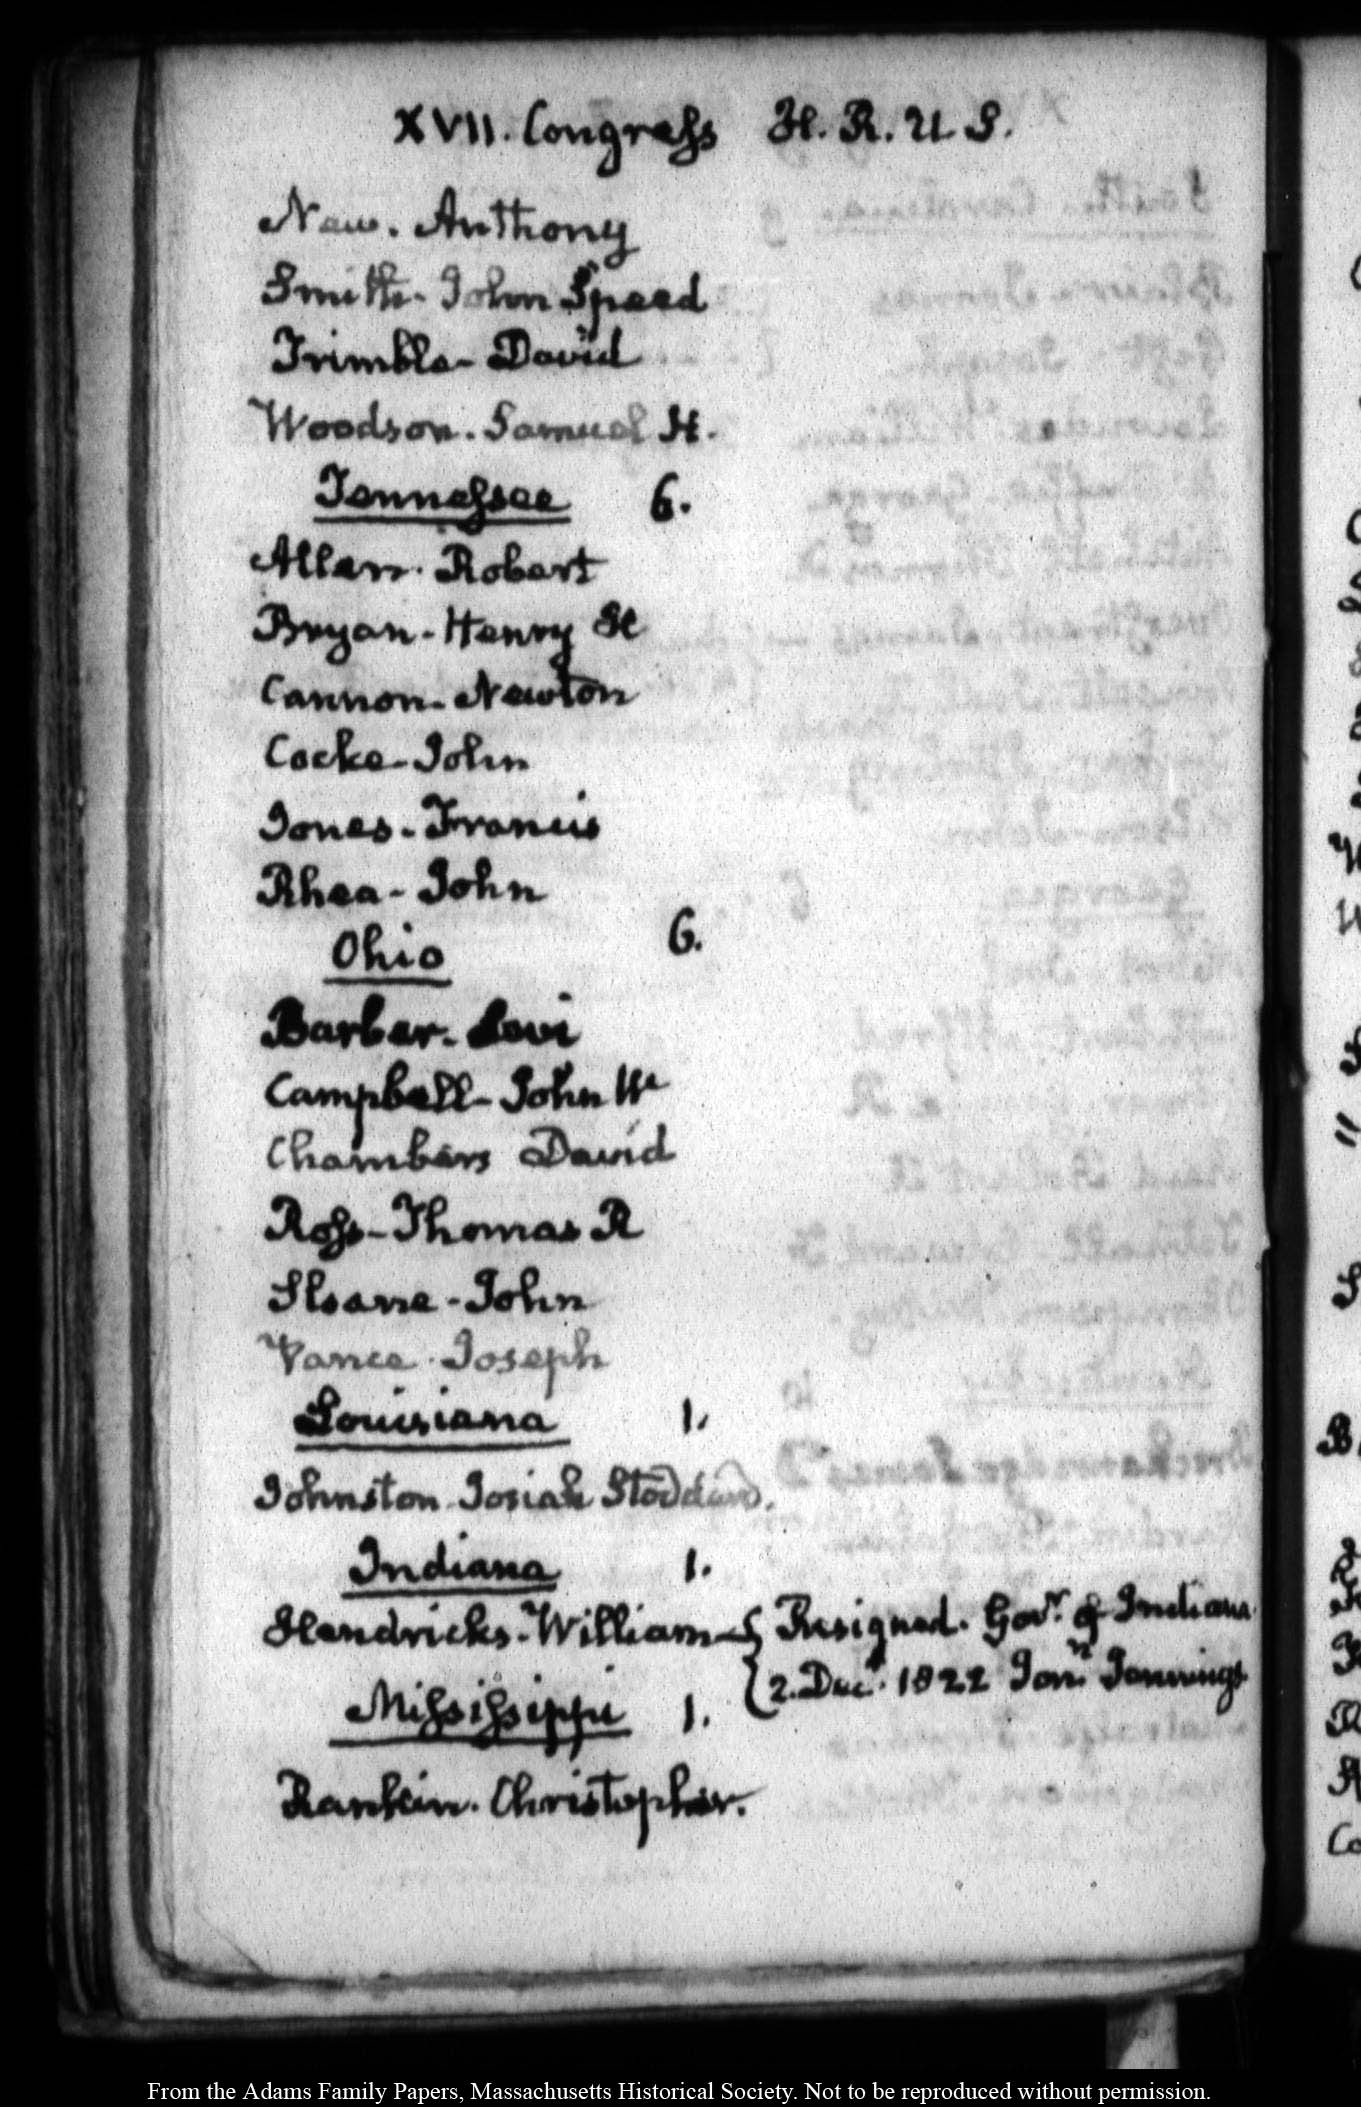 XVII. Congress H. R. U S.
New. Anthony
Smith- John Speed
Trimble- David
Woodson. Samuel H.
Tennessee 6.
Allen. Robert
Bryan- Henry H
Cannon- Newton
Cocke- John
Jones- Francis
Rhea- John
Ohio 6.
Barber- Levi
Campbell- John W
Chambers David
Ross- Thomas R
Sloane- John
Vance. Joseph
Louisiana 1.
Johnston. Josiah Stoddard.
Indiana 1.
Hendricks. William- { Resigned. Govr. of Indiana
{ 2. Decr. 1822 Jonn. Jennings
Mississippi 1.
Rankin. Christopher.
From the Adams Family Papers, Massachusetts Historical Society. Not to be reproduced without permission.